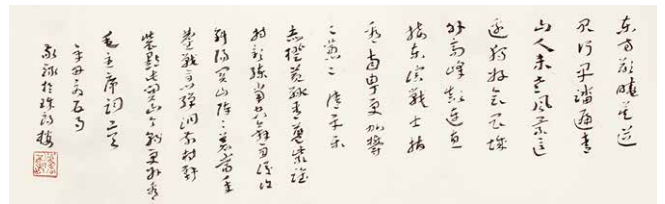 东方欲晓莫道
君行早踏遍青
山人未老风景这
边独好会昌城
外高峰颠连直
接东溟战士指
看南粤更加郁
々葱々 清平乐
赤橙黄绿青蓝紫谁
持彩练当空舞雨后复
斜阳关山阵々苍当年
鏖战急弹洞前村壁
装点此关山今朝更好看
毛主席词二首
辛丑
敬录于珠楼